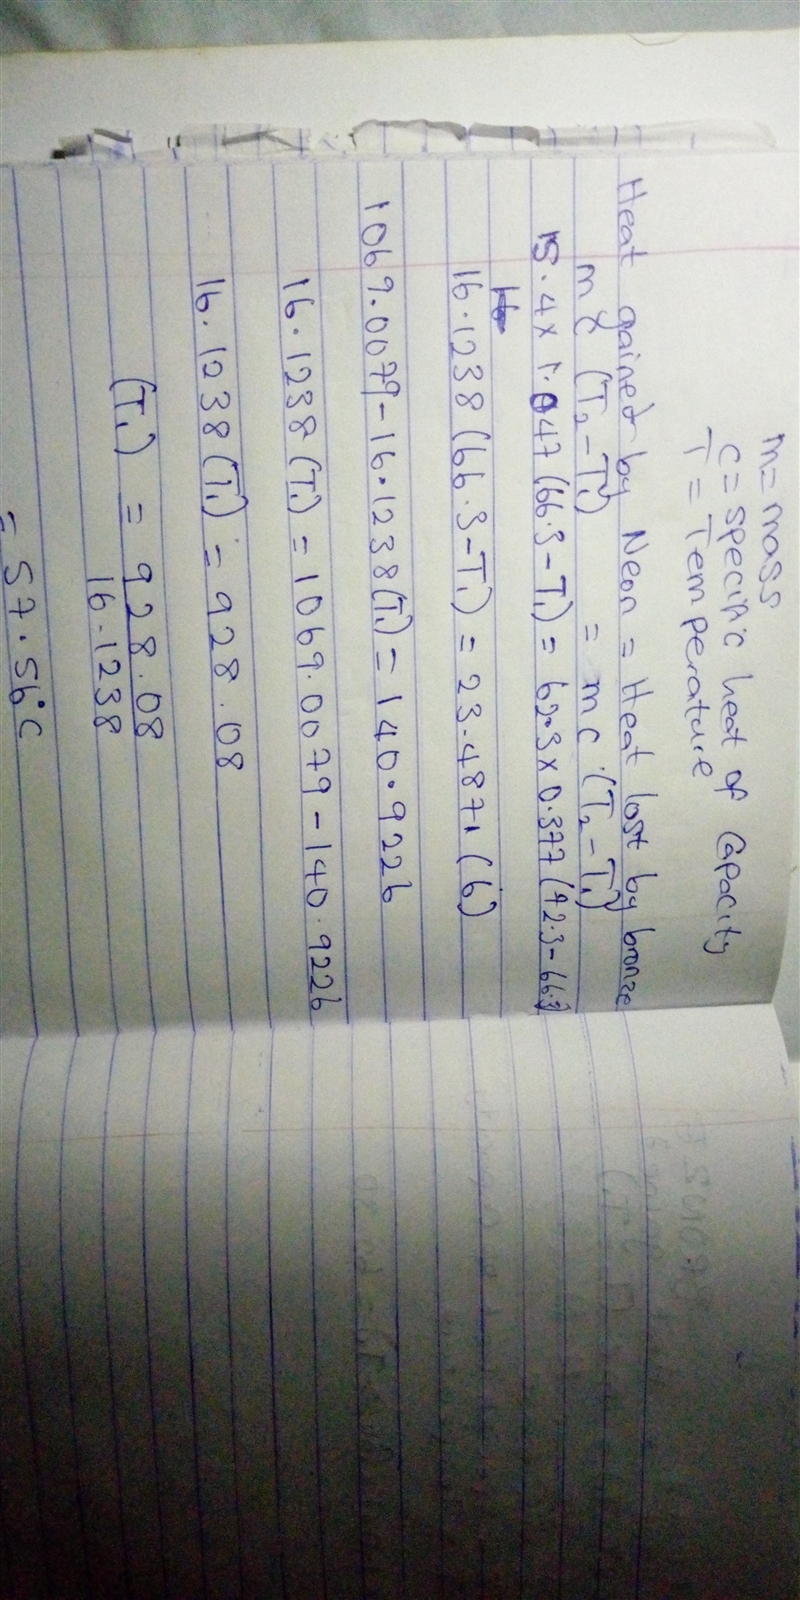 m = mass
c = specific heat of capacity
T = Temperature
Heat gained by Neon = Heat lost by bronze
mc (T₂ - T₁) = mc (T₂ - T₁)
15.4 x 1.047 (66.3 - T₁) = 62.3 x 0.377 (72.3 - 66.3)
16.1238 (66.3 - T₁) = 23.4871 (6)
1069.0079 - 16.1238 (T₁) = 140.9226
16.1238 (T₁) = 1069.0079 - 140.9226
16.1238 (T₁) = 928.08
(T₁) = 928.08
16.1238
= 57.56°C